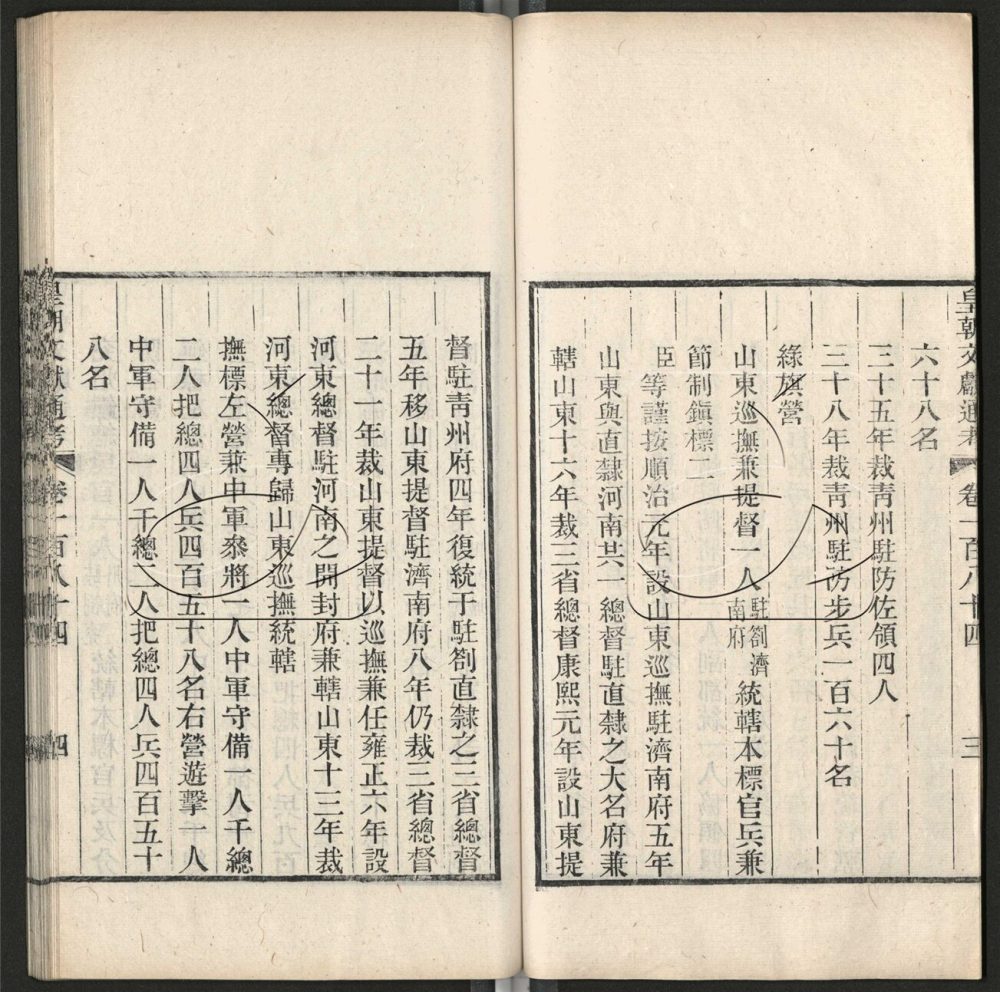 皇朝文獻通考 卷一百八十四 三
六十八名
三十五年裁靑州駐防佐領四人
三十八年裁靑州駐防步兵一百六十名
綠旗營
山東巡撫兼提督一人駐劄濟南府統轄本標官兵兼
節制鎭標二
臣等謹按順治元年設山東巡撫駐濟南府五年
山東與直隸河南共一總督駐直隸之大名府兼
轄山東十六年裁三省總督康熙元年設山東提
督駐靑州府四年復統于駐劄直隸之三省總督
五年移山東提督駐濟南府八年仍裁三省總督
二十一年裁山東提督以巡撫兼任雍正六年設
河東總督駐河南之開封府兼轄山東十三年裁
河東總督專歸山東巡撫統轄
撫標左營兼中軍叅將一人中軍守備一人千總
二人把總四人兵四百五十八名右營遊擊一人
中軍守備一人千總二人把總四人兵四百五十
八名
皇朝文獻通考 卷一百八十四 四